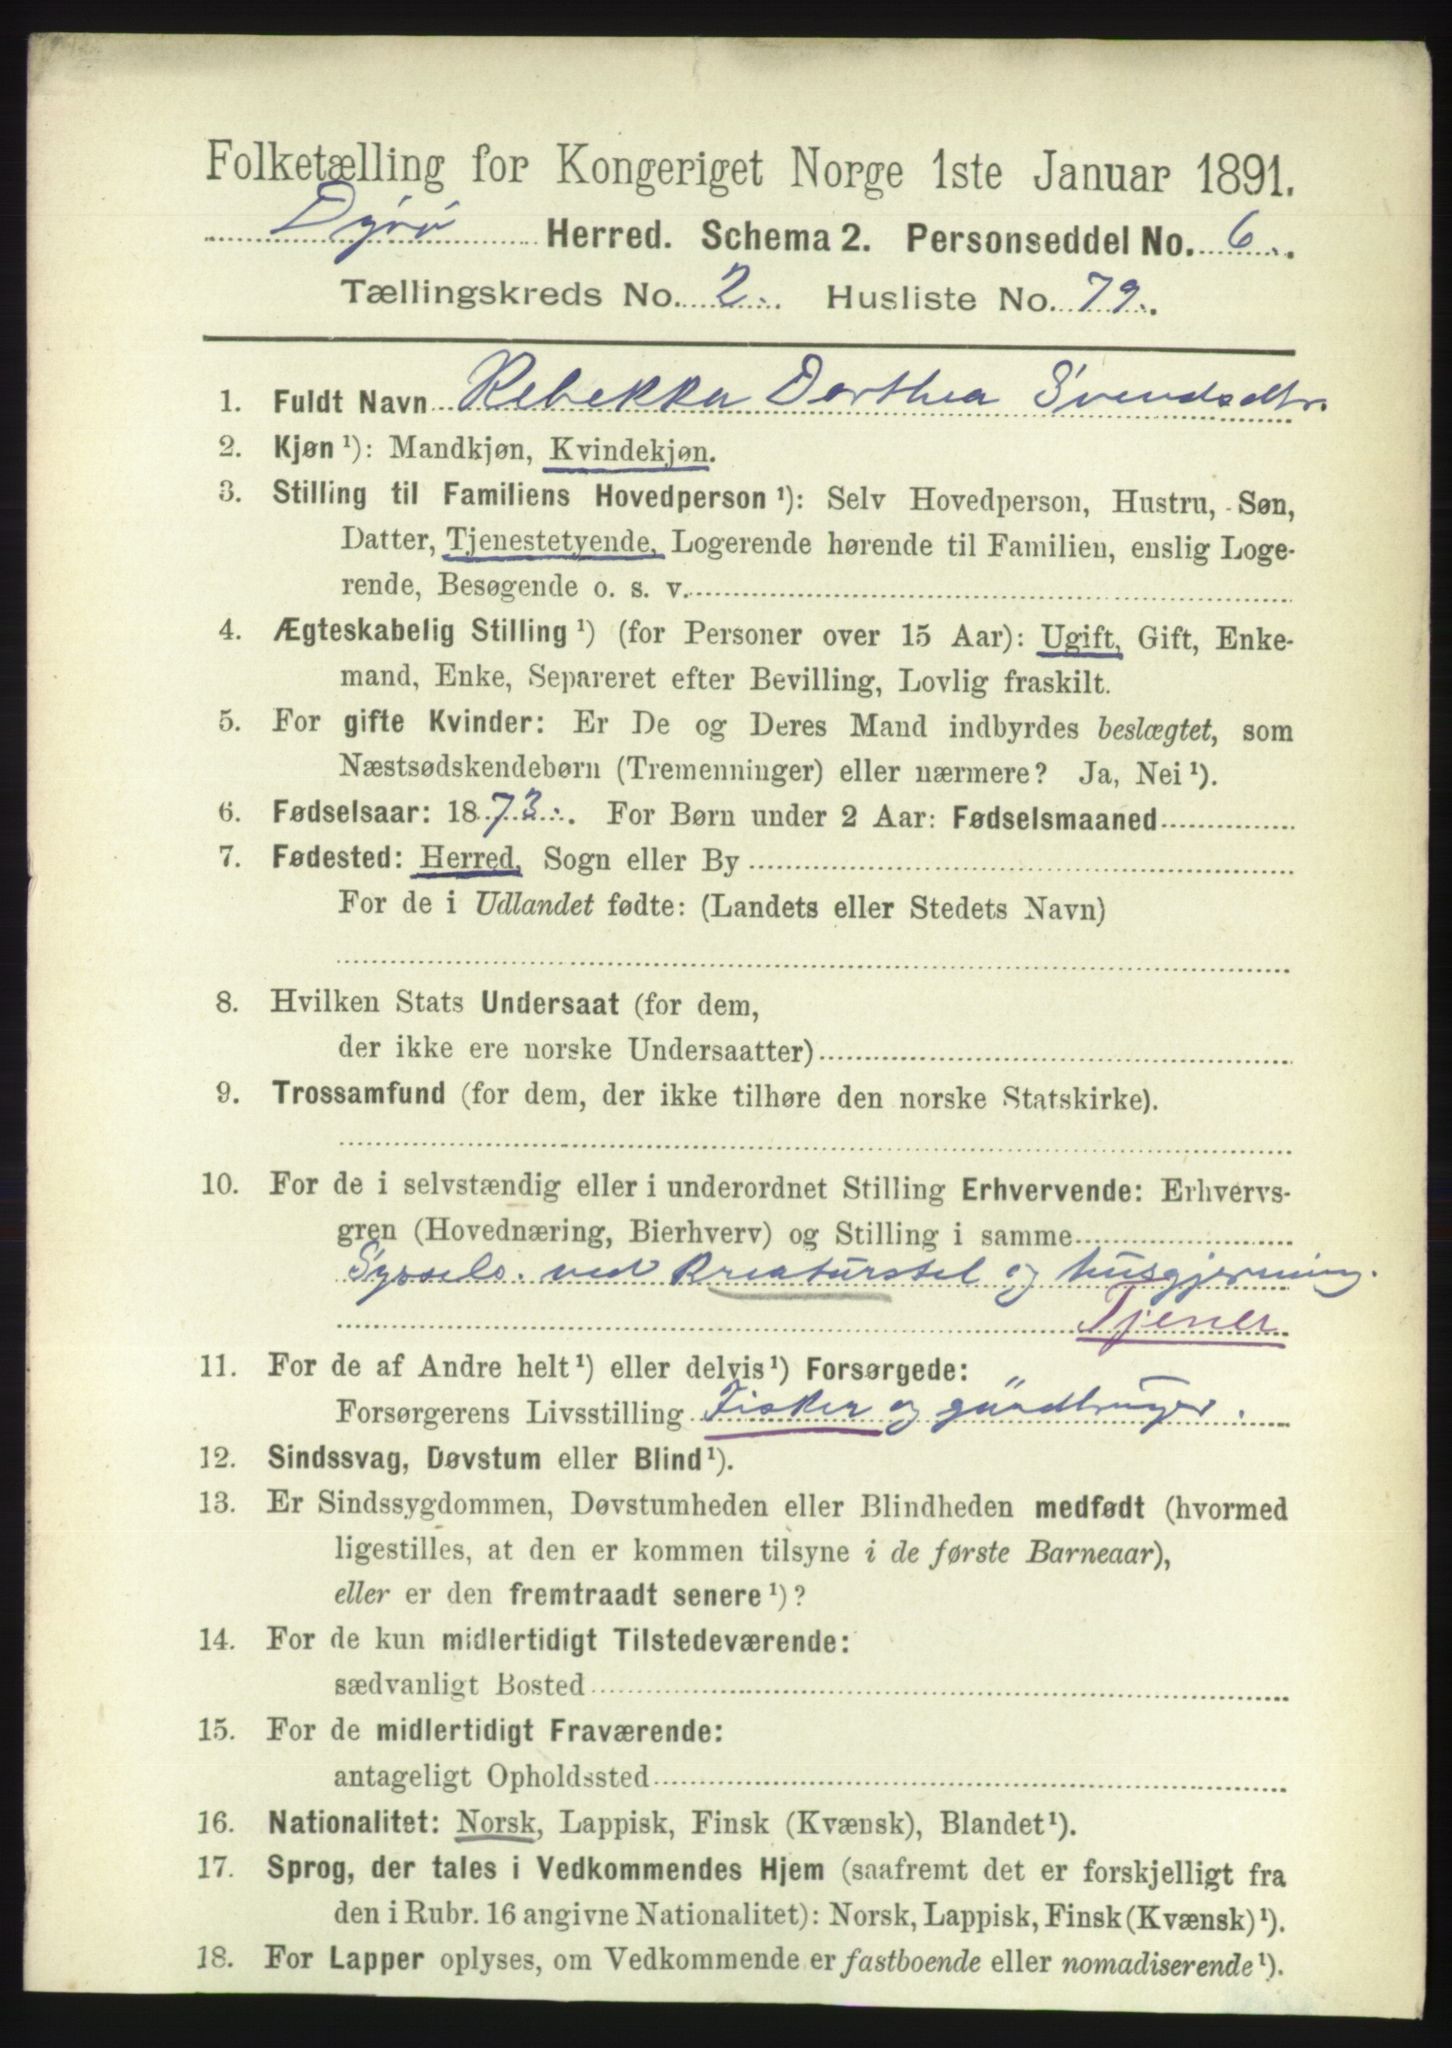 Folketælling for Kongeriget Norge 1ste Januar 1891.
Dyrø Herred. Schema 2. Personseddel No. 6.
Tællingskreds No. 2. Husliste No. 79.
1. Fuldt Navn Rebekka Dorthea Svendsdtr.
2. Kjøn ¹): Mandkjøn, Kvindekjøn.
3. Stilling til Familiens Hovedperson ¹): Selv Hovedperson, Hustru, Søn,
Datter, Tjenestetyende, Logerende hørende til Familien, enslig Loge-
rende, Besøgende o. s. v.
4. Ægteskabelig Stilling ¹) (for Personer over 15 Aar): Ugift, Gift, Enke-
mand, Enke, Separeret efter Bevilling, Lovlig fraskilt.
5. For gifte Kvinder: Er De og Deres Mand indbyrdes beslægtet, som
Næstsødskendebørn (Tremenninger) eller nærmere? Ja, Nei ¹).
6. Fødselsaar: 1873. For Børn under 2 Aar: Fødselsmaaned
7. Fødested: Herred, Sogn eller By
For de i Udlandet fødte: (Landets eller Stedets Navn)
8. Hvilken Stats Undersaat (for dem,
der ikke ere norske Undersaatter)
9. Trossamfund (for dem, der ikke tilhøre den norske Statskirke).
10. For de i selvstændig eller i underordnet Stilling Erhvervende: Erhvervs-
gren (Hovednæring, Bierhverv) og Stilling i samme
Syssels. ved Kreaturstel og husgjerning.
Tjener
11. For de af Andre helt ¹) eller delvis ¹) Forsørgede:
Forsørgerens Livsstilling Fisker og gårdbruger.
12. Sindssvag, Døvstum eller Blind ¹).
13. Er Sindssygdommen, Døvstumheden eller Blindheden medfødt (hvormed
ligestilles, at den er kommen tilsyne i de første Barneaar),
eller er den fremtraadt senere ¹)?
14. For de kun midlertidigt Tilstedeværende:
sædvanligt Bosted
15. For de midlertidigt Fraværende:
antageligt Opholdssted
16. Nationalitet: Norsk, Lappisk, Finsk (Kvænsk), Blandet ¹).
17. Sprog, der tales i Vedkommendes Hjem (saafremt det er forskjelligt fra
den i Rubr. 16 angivne Nationalitet): Norsk, Lappisk, Finsk (Kvænsk) ¹).
18. For Lapper oplyses, om Vedkommende er fastboende eller nomadiserende ¹).